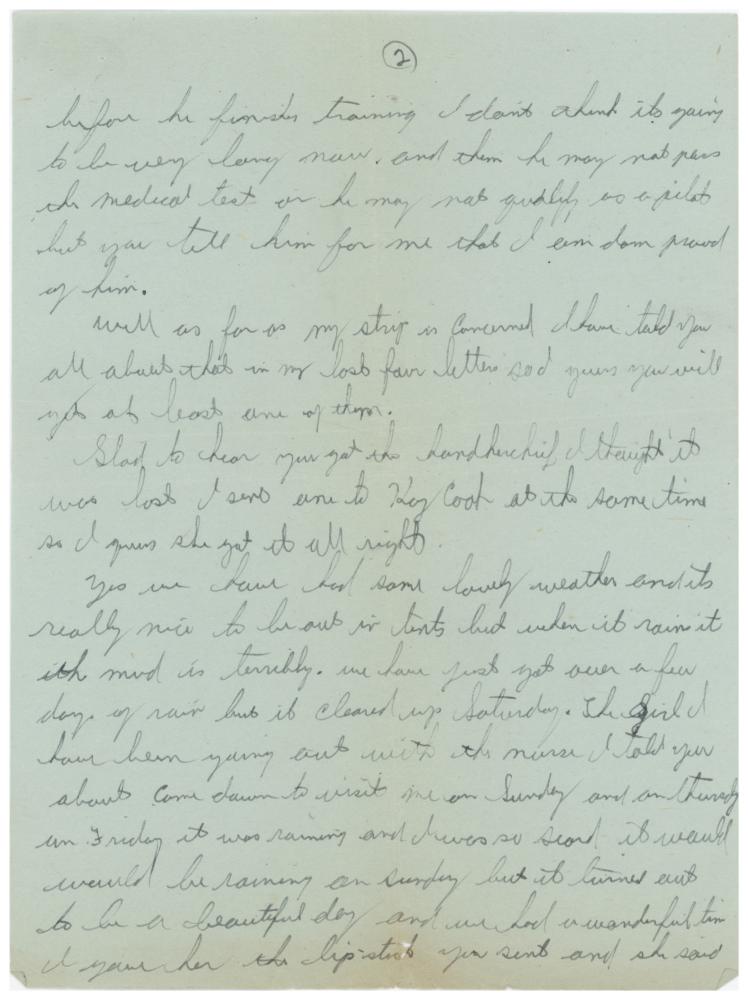 2
before he finishes training I don't think its going
to be very long now. and then he may not pass
the medical test or he may not qualify as a pilot
but you tell him for me that I am dam proud
of him.
Well as far as my strip is concerned I have told you
all about that in my last four letters so I guess you will
get at least one of them.
Glad to hear you got the handkerchief I thought it
was lost I sent one to Kay Cook at the same time
so I guess she got it all right.
Yes we have had some lovely weather and its
really nice to be out in tents but when it rains it
ith mud is terribly. we have just got over a few
days of rain but it cleared up Saturday. The girl I
have been going out with the nurse I told you
about came down to visit me on Sunday and on thursday
an Friday it was raining and I was so scard it would
would be raining on sunday but it turned out
to be a beautiful day and we had a wonderful tim
I gave her the lip-stick you sent and she said